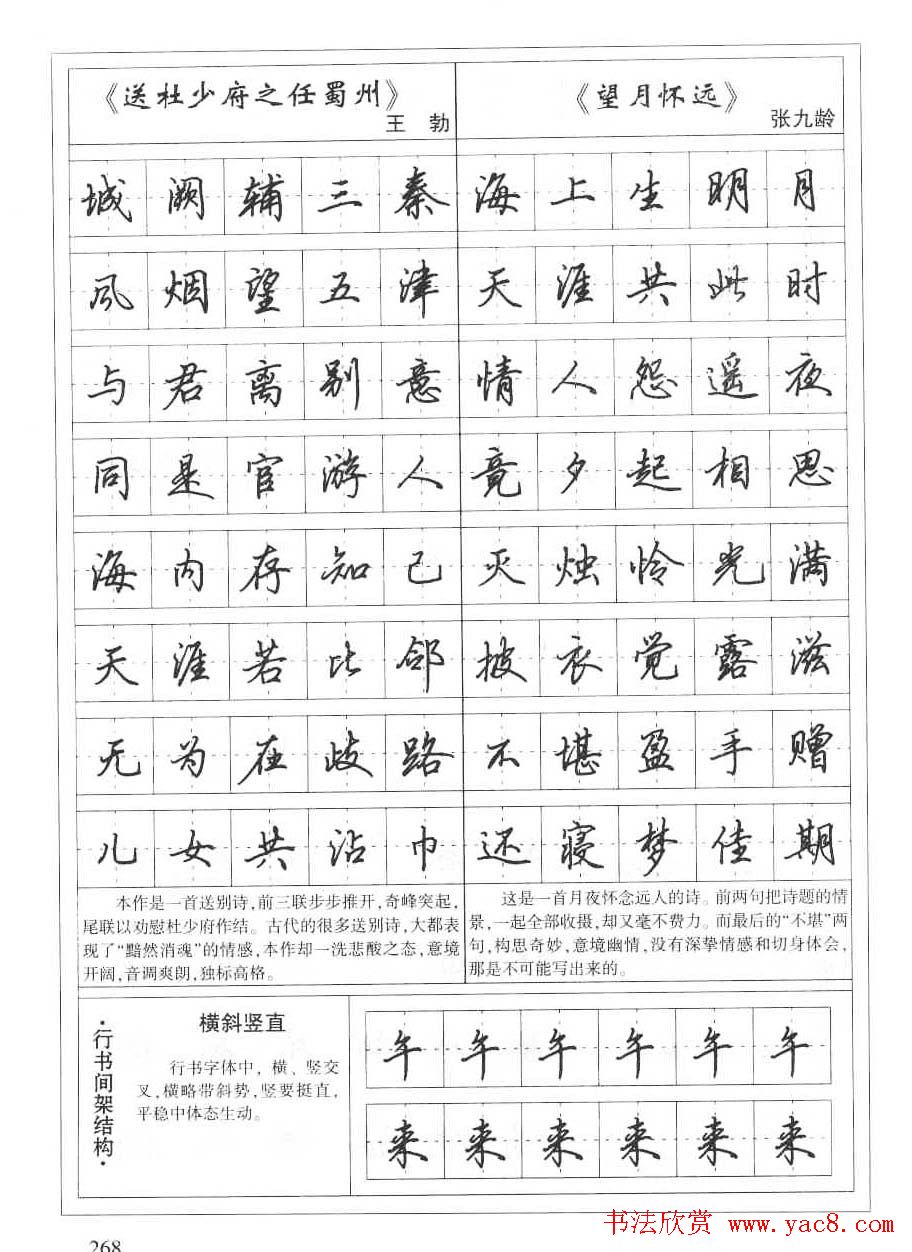 《送杜少府之任蜀州》
王 勃
城阙辅三秦
风烟望五津
与君离别意
同是宦游人
海内存知己
天涯若比邻
无为在歧路
儿女共沾巾
本作是一首送别诗,前三联步步推开,奇峰突起,
尾联以劝慰杜少府作结。古代的很多送别诗,大都表
现了“黯然消魂”的情感,本作却一洗悲酸之态,意境
开阔,音调爽朗,独标高格。
《望月怀远》
张九龄
海上生明月
天涯共此时
情人怨遥夜
竟夕起相思
灭烛怜光满
披衣觉露滋
不堪盈手赠
还寝梦佳期
这是一首月夜怀念远人的诗。前两句把诗题的情
景,一起全部收摄,却又毫不费力。而最后的“不堪”两
句,构思奇妙,意境幽情,没有深挚情感和切身体会,
那是不可能写出来的。
·行书间架结构·
横斜竖直
行书字体中,横、竖交
叉,横略带斜势,竖要挺直,
平稳中体态生动。
午午午午午午
来来来来来来
书法欣赏 www.yac8.com
268